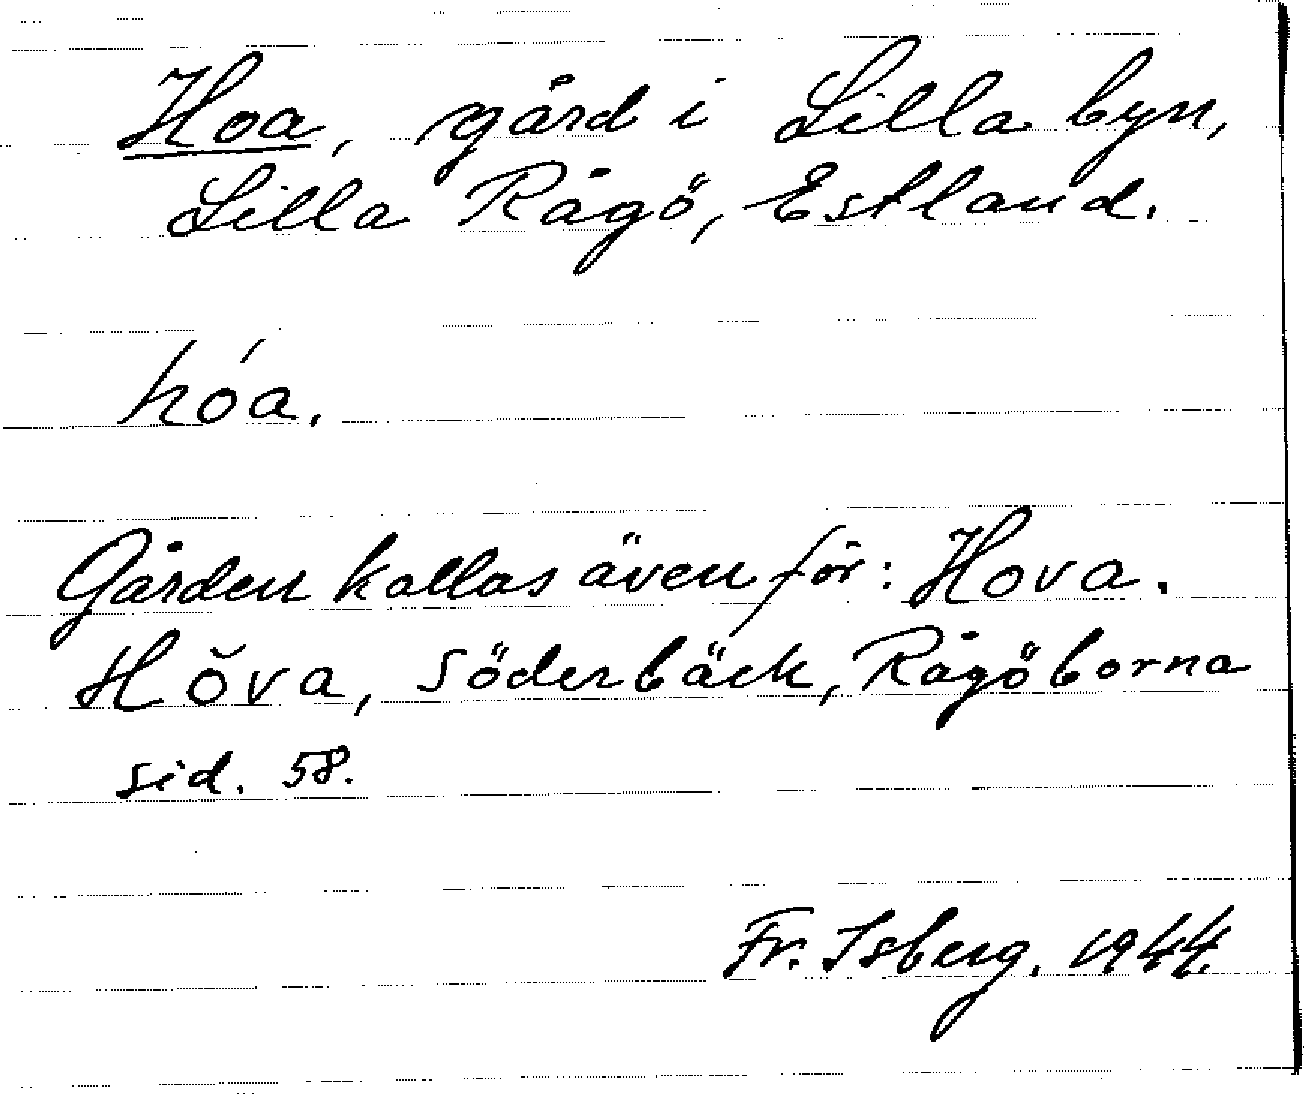 Hoa, gård i Lilla byn,
Lilla Rågö, Estland.
hóa.
Gården kallas även för: Hova.
Hŏva, Söderbäck, Rågöborna
sid. 58.
Fr. Isberg. 1944.